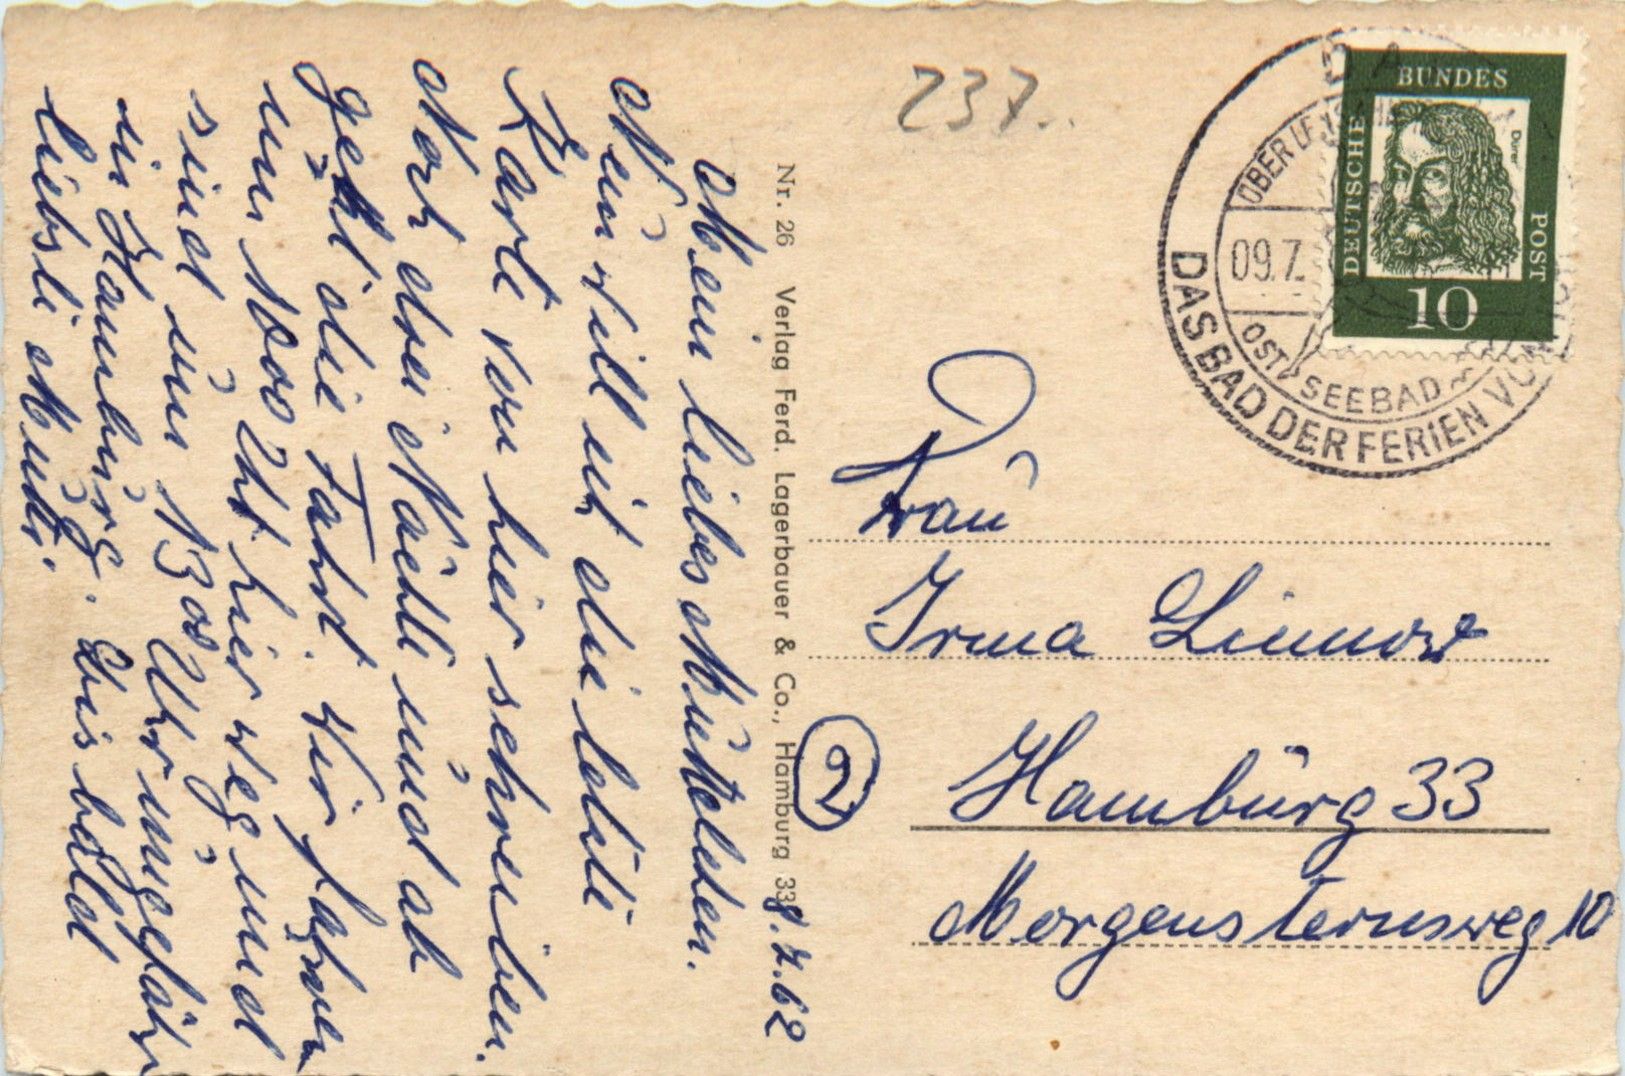 8.7.62
Mein liebes Muttchen.
Nun will ich die letzte
Karte von hier schreiben.
Noch drei Nächte und ab
geht die Fahrt. Wir fahren
um 1000 Uhr hier weg und
sind um 1300 Uhr ungefähr
in Hamburg. Bis bald
liebste Mutti.
Nr. 26 Verlag Ferd. Lagerbauer & Co., Hamburg 33
237.
DEUTSCHE
BUNDES
POST
Dürer
10
09.7.
OSTSEEBAD
DAS BAD DER FERIEN VON
Frau
Irma Linnow
2
Hamburg 33
Morgensternsweg 10